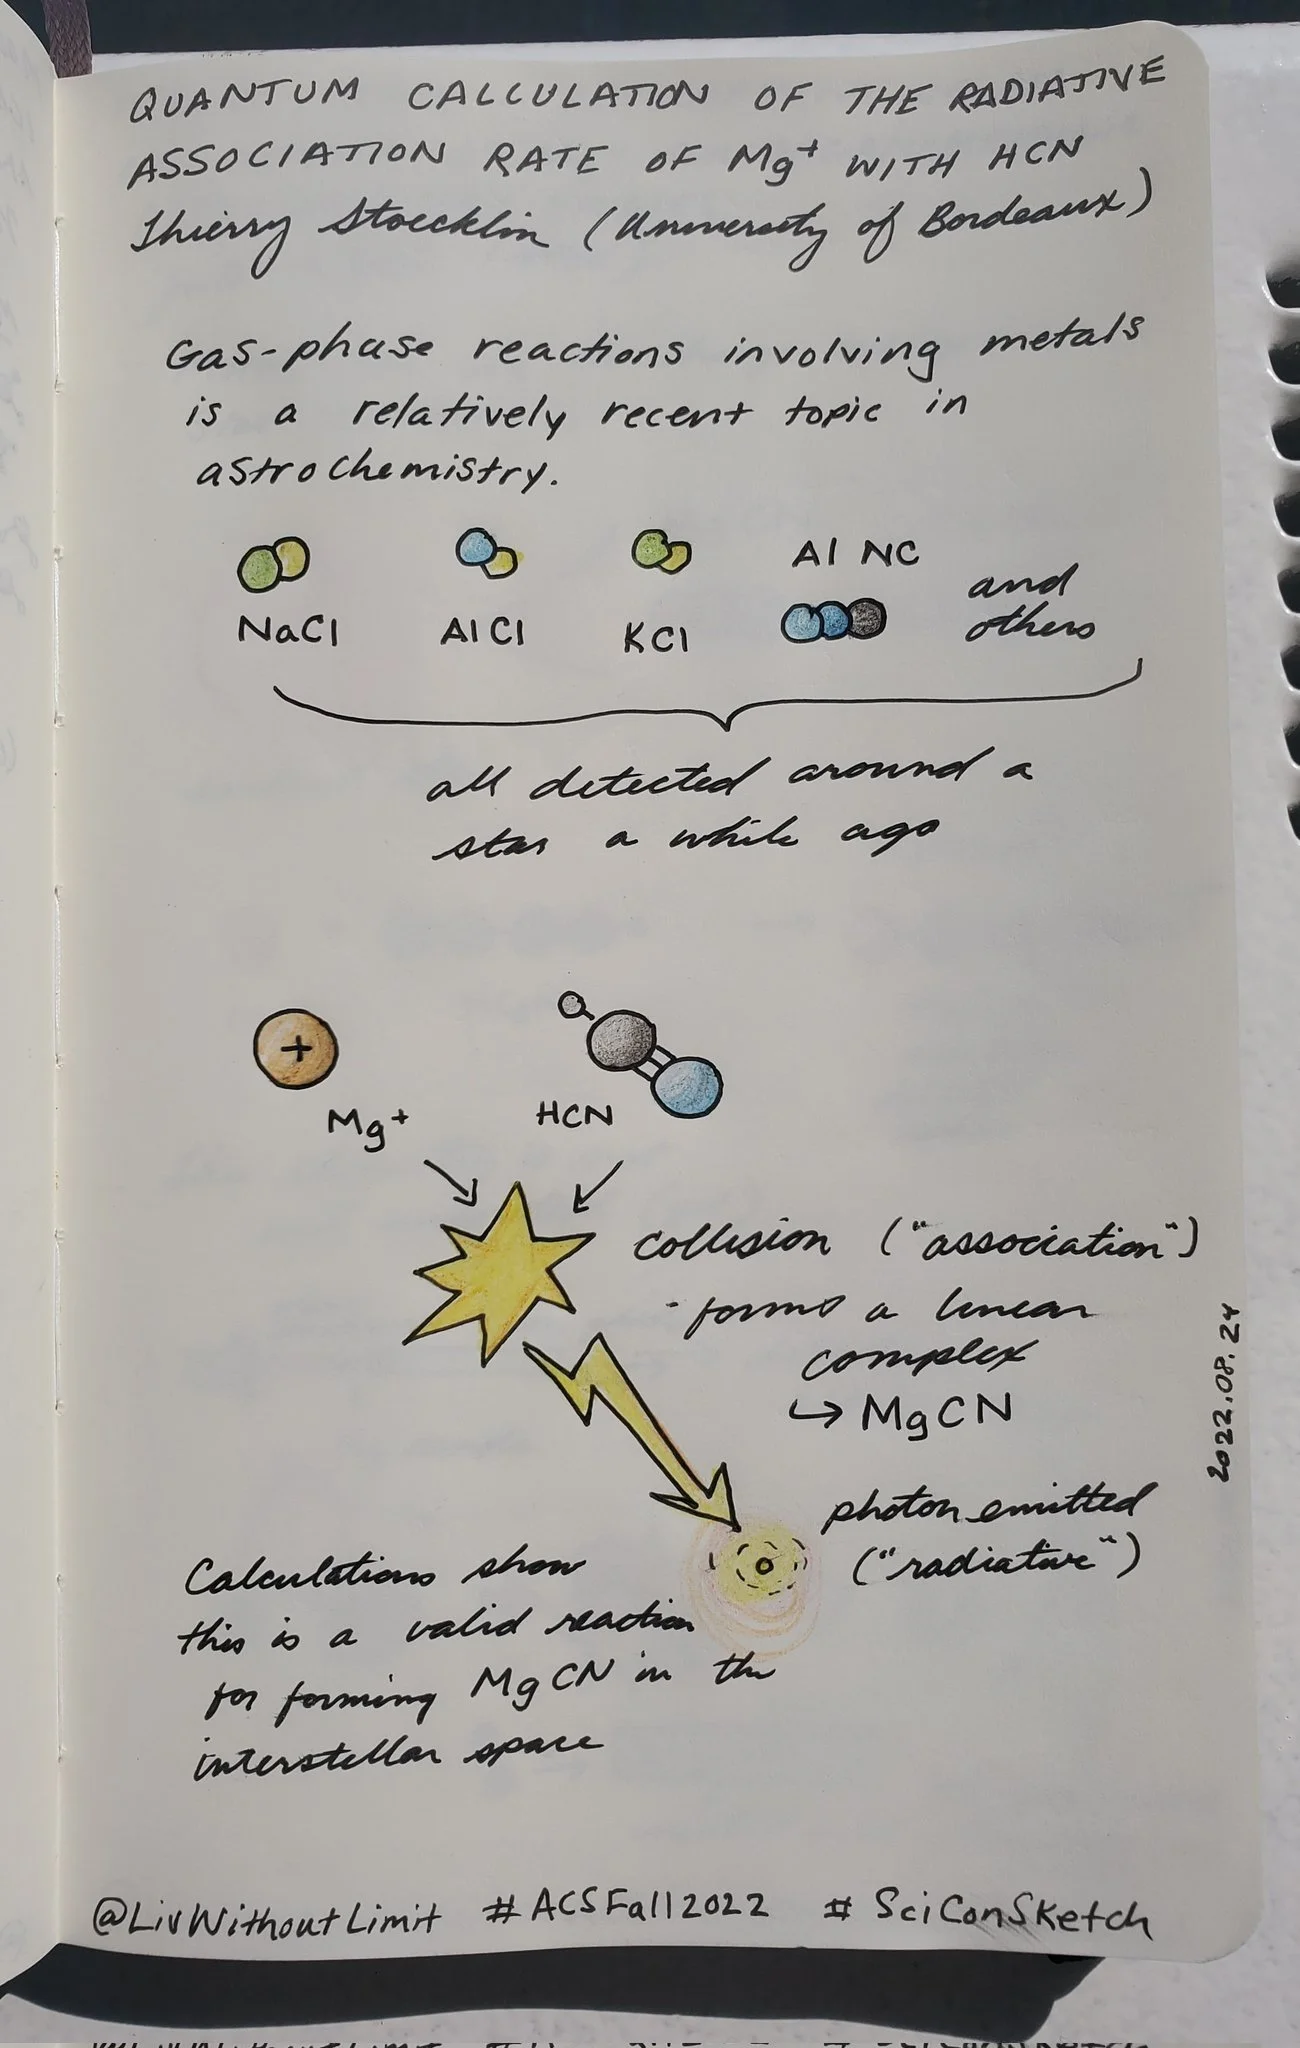 QUANTUM CALCULATION OF THE RADIATIVE
ASSOCIATION RATE OF Mg⁺ WITH HCN
Thierry Stoecklin (University of Bordeaux)
Gas-phase reactions involving metals
is a relatively recent topic in
astrochemistry.
NaCl
AlCl
KCl
AlNC
and
others
all detected around a
star a while ago
+
Mg⁺
HCN
collision ("association")
- forms a linear
complex
↳ MgCN
photon emitted
("radiative")
Calculations show
this is a valid reaction
for forming MgCN in the
interstellar space
2022.08.24
@LivWithoutLimit #ACSFall2022 #SciConSketch